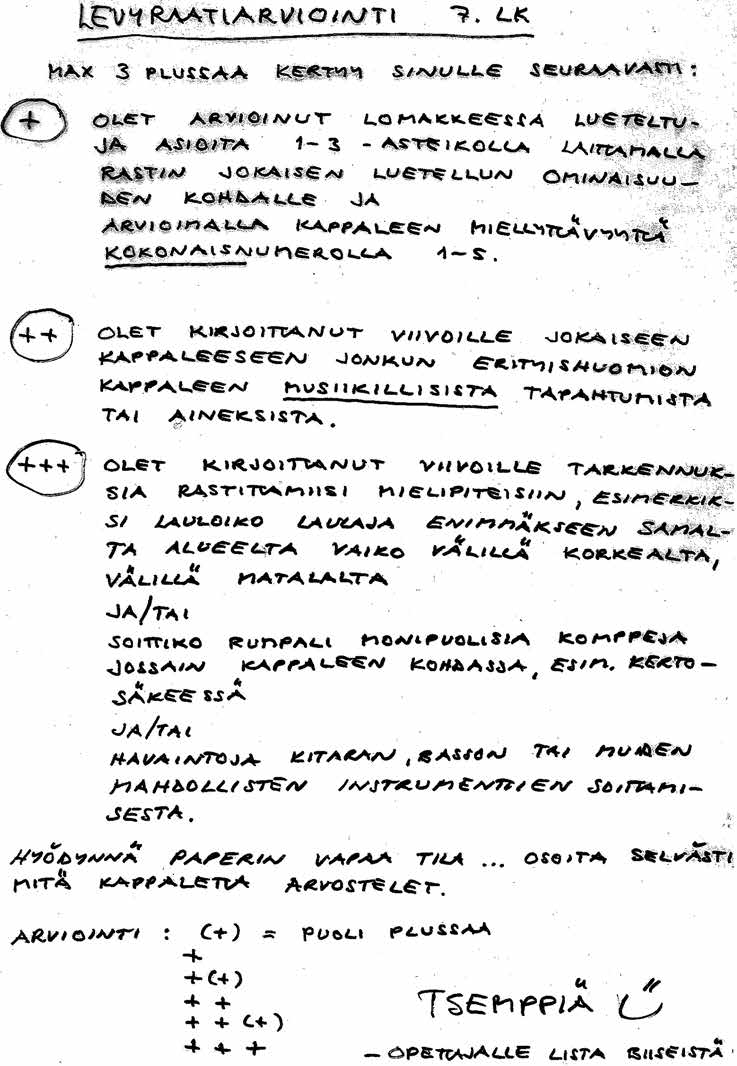 LEVYRAATIARVIOINTI 7. LK
MAX 3 PLUSSAA KERTYY SINULLE SEURAAVASTI:
+ OLET ARVIOINUT LOMAKKEESSA LUETELTU-
JA ASIOITA 1-3 -ASTEIKOLLA LAITTAMALLA
RASTIN JOKAISEN LUETELLUN OMINAISUU-
DEN KOHDALLE JA
ARVIOIMALLA KAPPALEEN MIELLYTTÄVYYTTÄ
KOKONAISNUMEROLLA 1-5.
++ OLET KIRJOITTANUT VIIVOILLE JOKAISEEN
KAPPALEESEEN JONKUN ERITYISHUOMION
KAPPALEEN MUSIIKILLISISTA TAPAHTUMISTA
TAI AINEKSISTA.
+++ OLET KIRJOITTANUT VIIVOILLE TARKENNUK-
SIA RASTITTAMIISI MIELIPITEISIIN, ESIMERKIK-
SI LAULOIKO LAULAJA ENIMMÄKSEEN SAMAL-
TA ALUEELTA VAIKO VÄLILLÄ KORKEALTA,
VÄLILLÄ MATALALTA
JA/TAI
SOITTIKO RUMPALI MONIPUOLISIA KOMPPEJA
JOSSAIN KAPPALEEN KOHDASSA, ESIM. KERTO-
SÄKEESSÄ
JA/TAI
HAVAINTOJA KITARAN, BASSON TAI MUIDEN
MAHDOLLISTEN INSTRUMENTTIEN SOITTAMI-
SESTA.
HYÖDYNNÄ PAPERIN VAPAA TILA ... OSOITA SELVÄSTI
MITÄ KAPPALETTA ARVOSTELET.
ARVIOINTI : (+) = PUOLI PLUSSAA
+
+(+)
+ +
+ + (+)
+ + +
TSEMPPIÄ
- OPETTAJALLE LISTA BIISEISTÄ